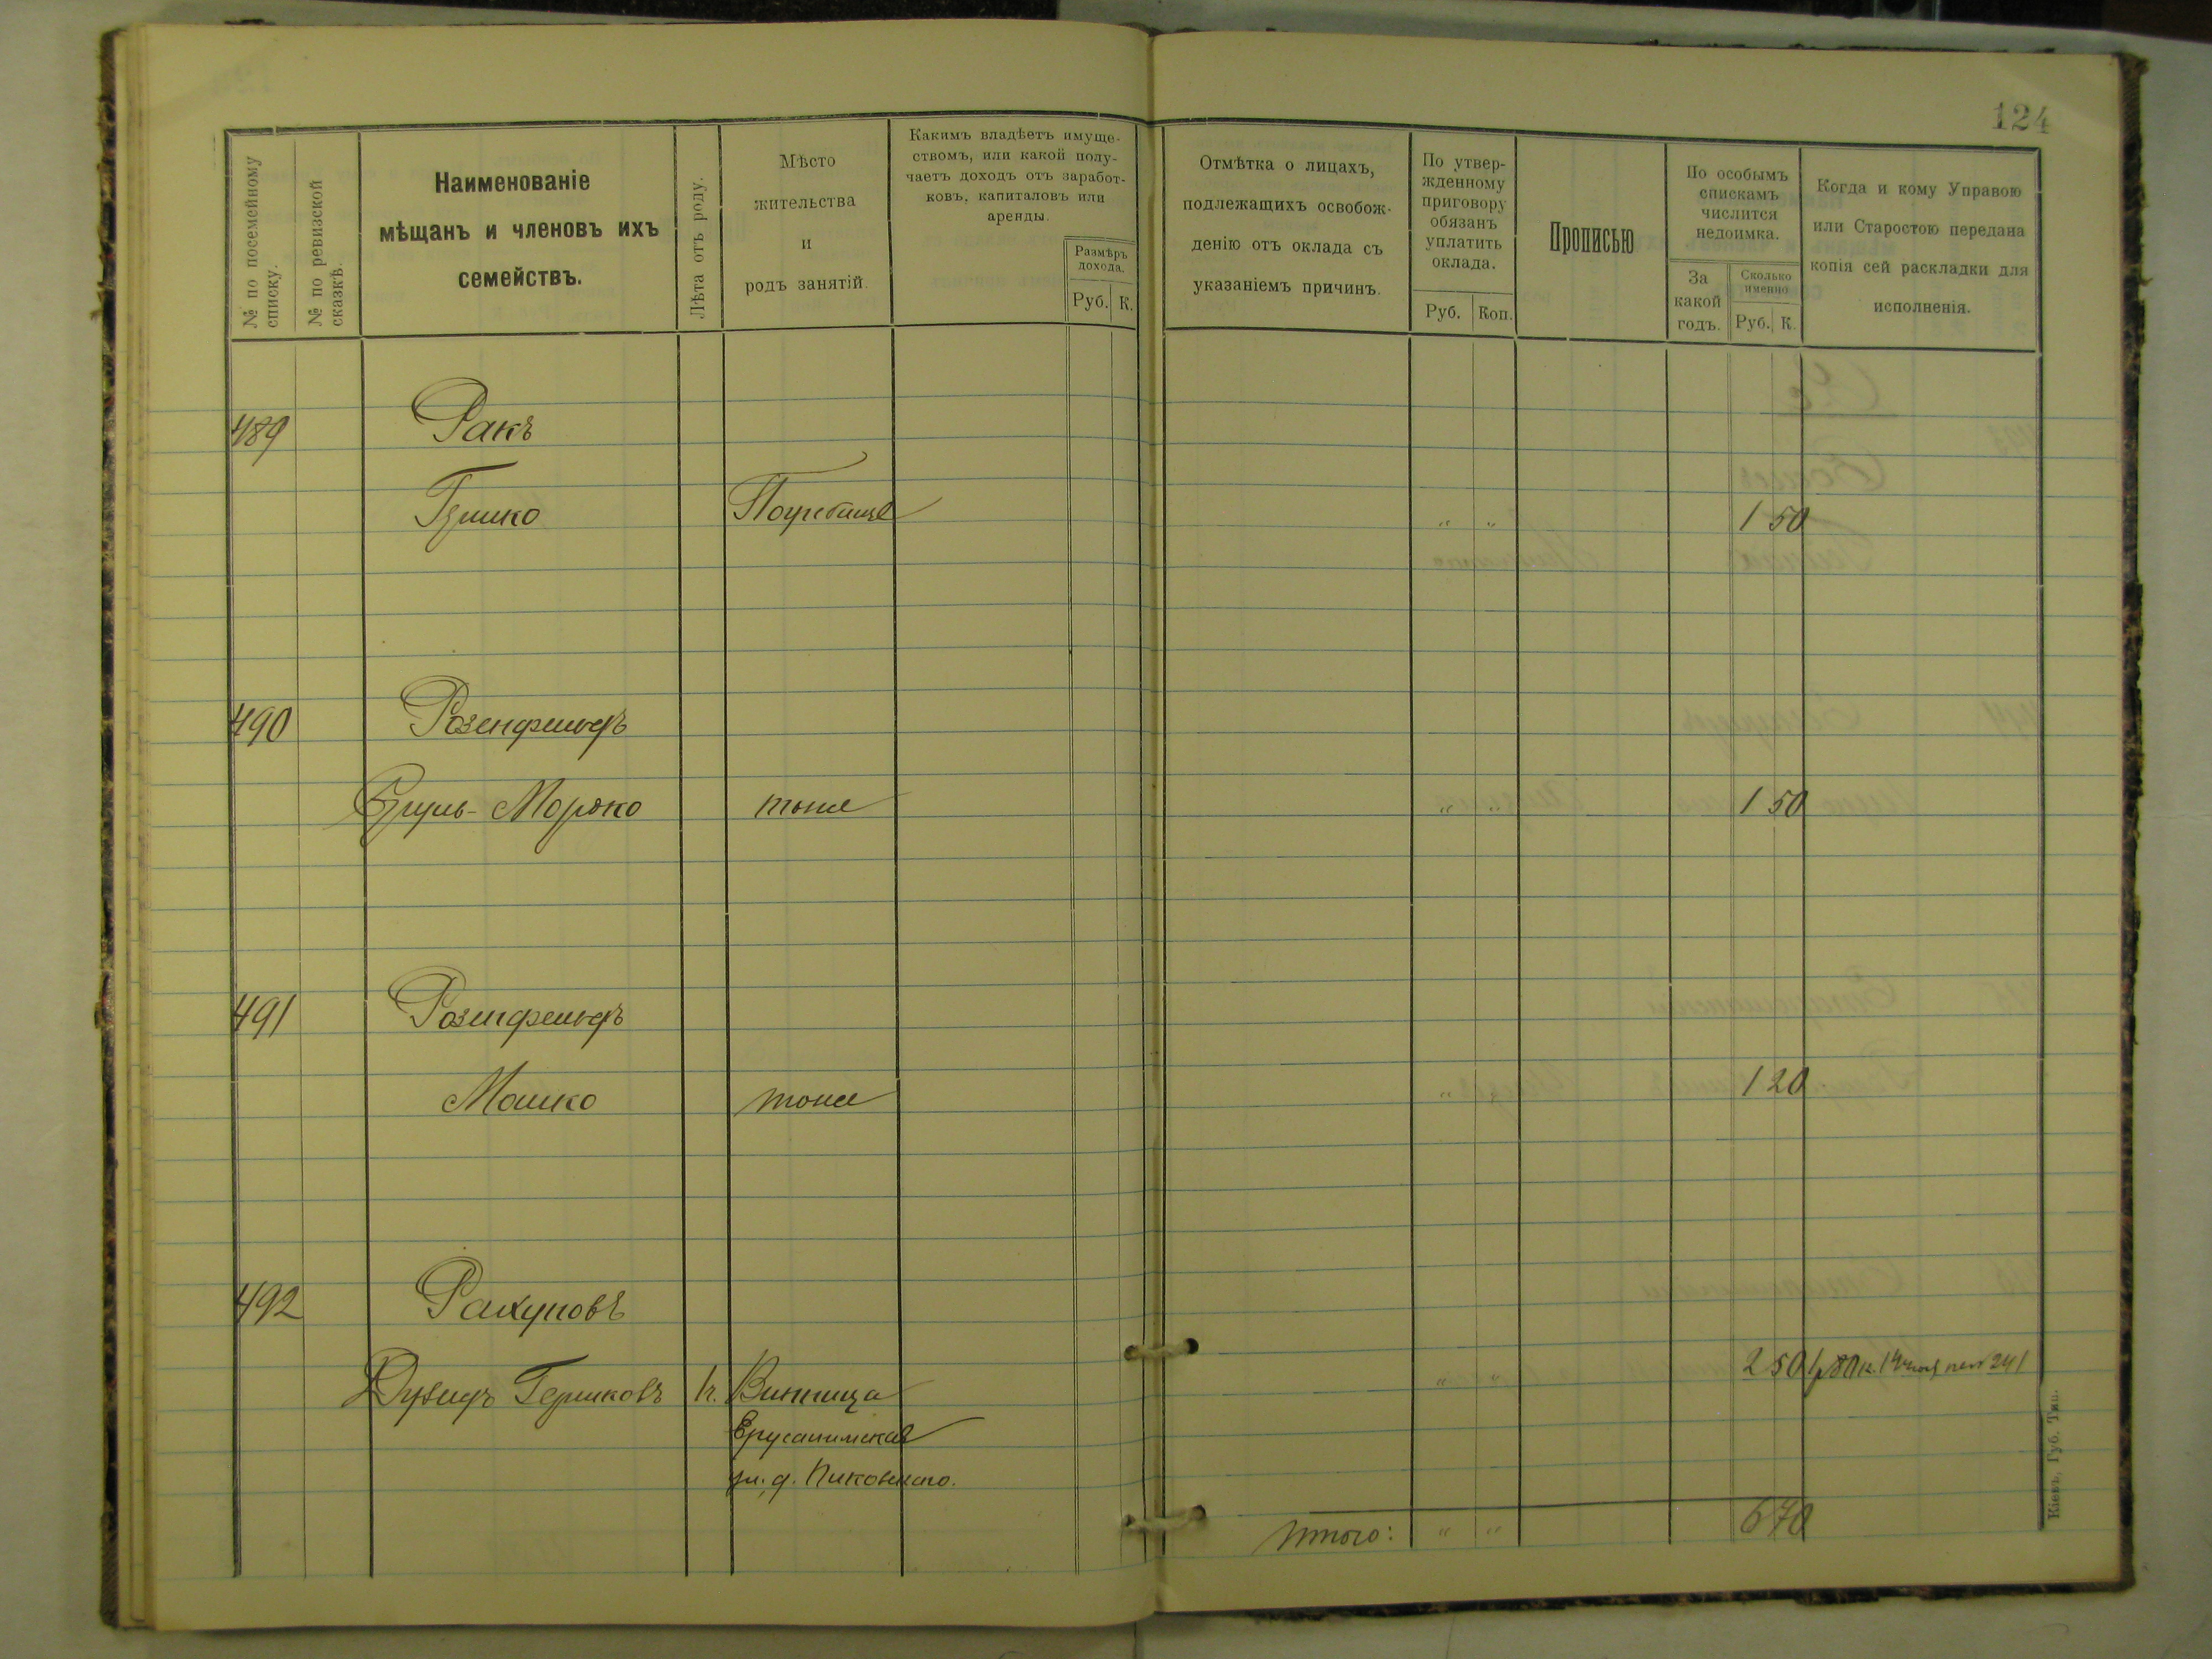 124
№ по посемейному
списку.
№ по ревизской
сказкѣ.
Наименованіе
мѣщанъ и членовъ ихъ
семействъ.
Лѣта отъ роду.
Мѣсто
жительства
и
родъ занятій.
Какимъ владѣетъ имуще-
ствомъ, или какой полу-
чаетъ доходъ отъ заработ-
ковъ, капиталовъ или
аренды.
Размѣръ
дохода.
Руб. К.
Отмѣтка о лицахъ,
подлежащихъ освобож-
денію отъ оклада съ
указаніемъ причинъ.
По утвер-
жденному
приговору
обязанъ
уплатить
оклада.
Руб. Коп.
Прописью
По особымъ
спискамъ
числится
недоимка.
За
какой
годъ.
Сколько
именно
Руб. К.
Когда и кому Управою
или Старостою передана
копія сей раскладки для
исполненія.
489 Ракъ
Гершко Погребище " " 1 50
490 Розенфельдъ
Сруль-Мордко тоже " " 1 50
491 Розенфельдъ
Мошко тоже " 1 20
492 Рахуновъ
Дувидъ Гершковъ Винница " " 2 50
Ерусалимская
ул. д. Пиковского.
Итого: " " 6 70
Кіевъ, Губ. Тип.